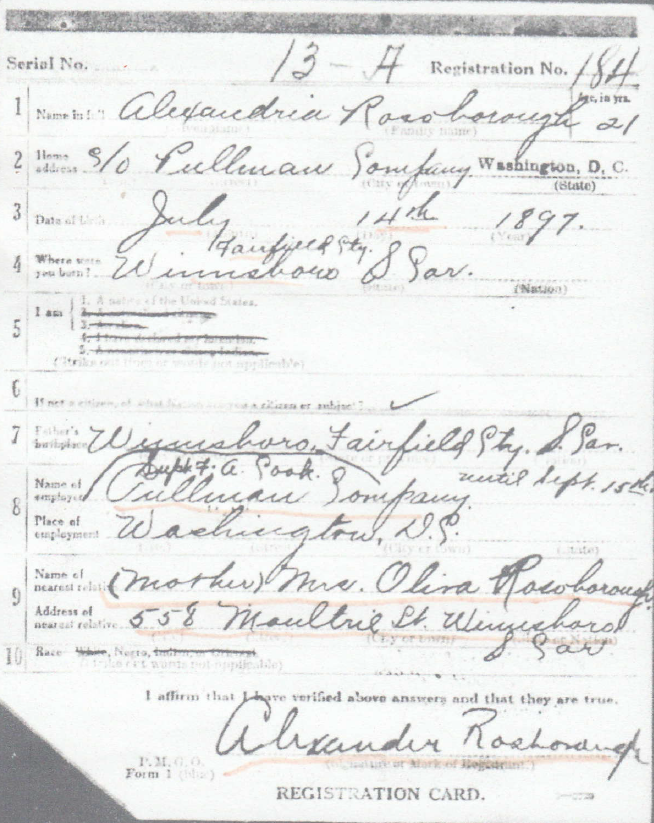 Serial No. 13 - A Registration No. 184
1 Name in full Alexandria Rosoborough Age, in yrs. 21
(Given name) (Family name)
2 Home address c/o Pullman Company Washington, D. C.
(City or town) (State)
3 Date of birth July 14th 1897.
(Month) (Day) (Year)
Fairfield Cty.
4 Where were you born? Winnsboro S Car.
(City or town) (State) (Nation)
5 I am 1. A native of the United States.
2.
3. An alien.
4. I have declared my intention.
5.
(Strike out lines or words not applicable)
6 If not a citizen, of what Nation are you a citizen or subject? ✓
7 Father's birthplace Winnsboro, Fairfield Cty. S. Car.
Supt. F. A. Cook. until Sept. 15th.
8 Name of employer Pullman Company
Place of employment Washington, D.C.
(City or town) (State)
9 Name of nearest relative (Mother) Mrs. Oliva Rosoborough
Address of nearest relative 558 Moultrie St. Winnsboro
(City or town) (State or Nation)
S Car
10 Race White, Negro, Indian, or Oriental
(Strike out words not applicable)
I affirm that I have verified above answers and that they are true.
Alexander Rosborough
P. M. G. O.
Form 1 (blue)
(Signature or Mark of Registrant.)
REGISTRATION CARD.